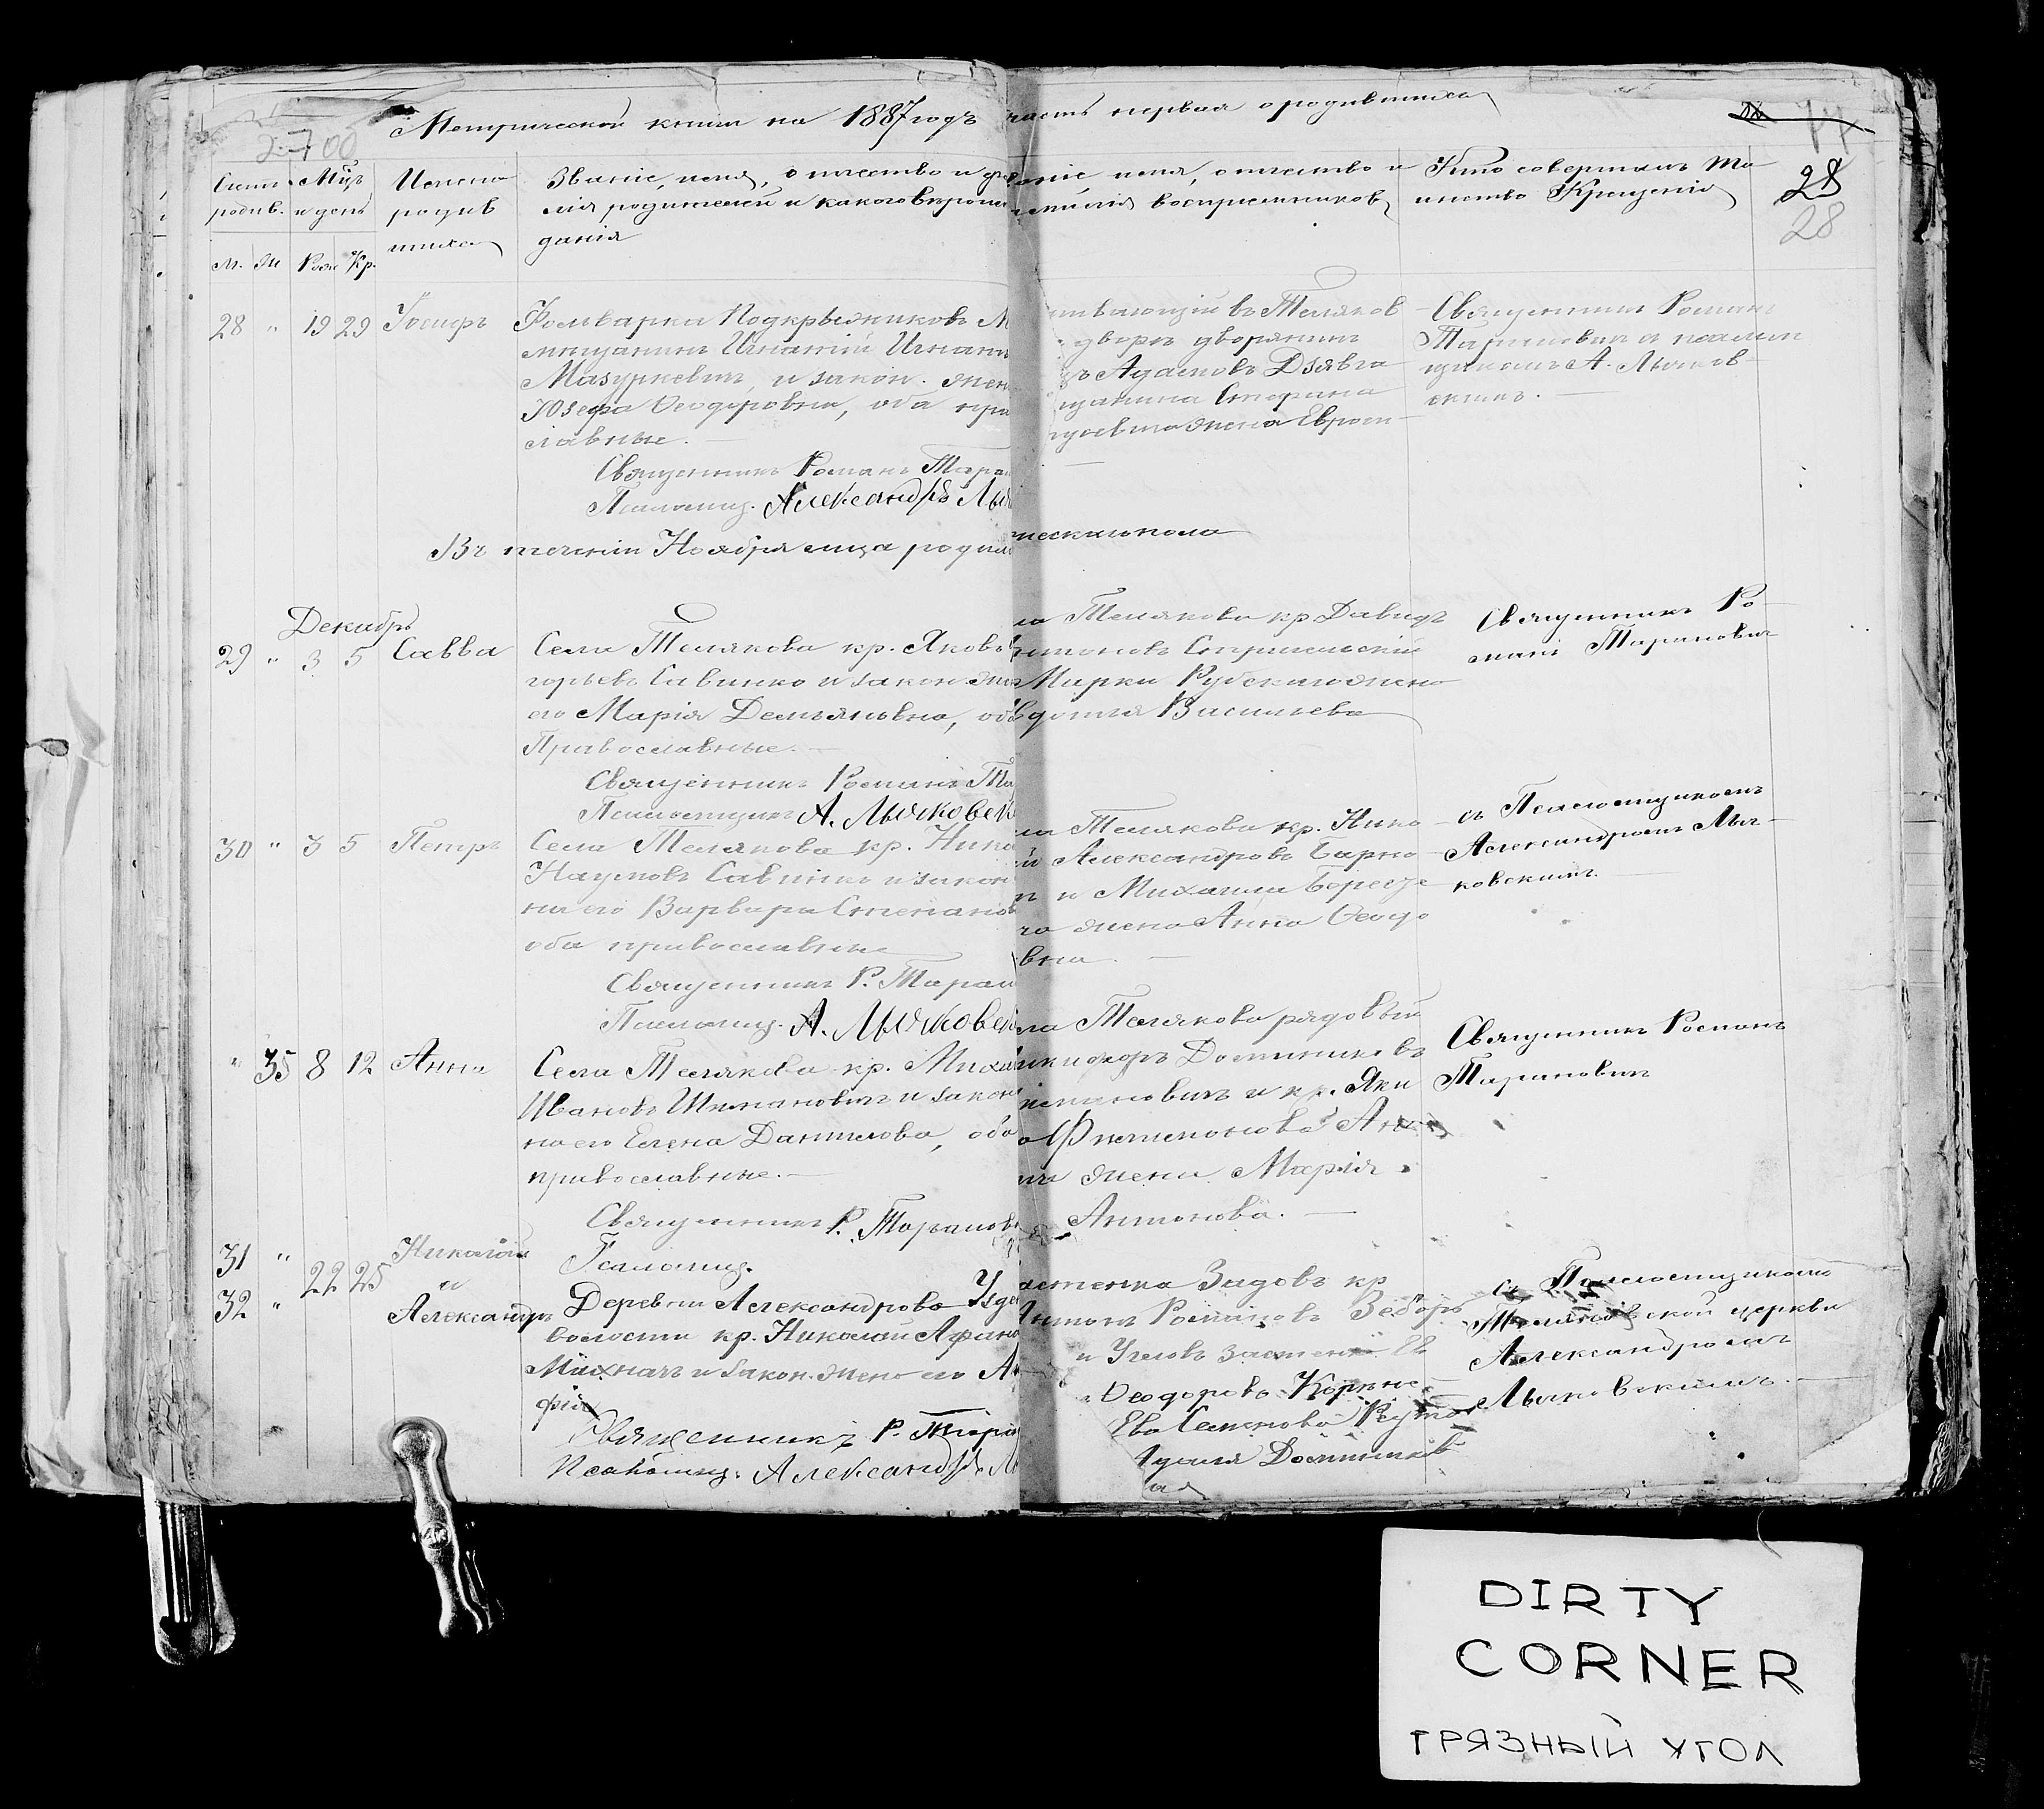 Метрической книги на 1887 годъ часть первая о родившихся
2700
28
28
Счетъ родив.
м. ж
Мѣц. и день
Рож Кр.
Имена
родив
шихся
Званіе, имя, отчество и фа
милія родителей и какого вѣроиспо
данія
Званіе имя, отчество и
фамилія воспріемниковъ
Кто совершалъ та
инство Крещенія
28 " 19 29 Іосифъ
Фольварка Подкрыжиковъ М
мѣщанинъ Игнатій Игнать
Мазуркевичъ, и закон. жен
Юзефа Ѳеодоровна, оба пра
славные.
Священникъ Романъ Тара
Псаломщ. Александръ Мы
живающій въ Теляков
дворѣ дворянинъ
Адамовъ Дзявга
щанина Стефана
жена Евфои
Священникъ Романъ
Тарановичъ съ псалом
щикомъ А. Мычков
скимъ.
Въ теченіи Ноября мца родил
мескаго пола
Декабрь
29 " 3 5 Савва
Села Телякова кр. Яковъ
горьевъ Савинко и закон. же
его Марія Демьяновна, об
Православные.
Священникъ Романъ Та
Псаломщикъ А. Мычковск
ла Телякова кр Давидъ
Марки Рубскаго жена
Васильева
Священникъ Ро
манъ Тарановичъ
30 " 3 5 Петръ
Села Телякова кр. Нико
Наумовъ Савинко и закон
на его Варвара Степанов
оба православные
Священникъ Р. Таран
Псаломщ. А. Мычковск
ла Телякова кр. Нико
й Александровъ Барко
и Михаила
го жена Анна Ѳеодо
вна.
съ Псаломщикомъ
Александромъ Мыч
ковскимъ.
" 35 8 12 Анна
Села Телякова кр. Миха
Ивановъ Шимановичъ и закон
на его Елена Данилова, оба
православные.
Священникъ Р. Таранов
Псаломщ.
ла Телякова рядовый
Доминиковъ
имановичъ и кр. Яки
Филимонова
жена Марія
Антонова.
Священникъ Романъ
Тарановичъ
31 "
32 "
22 25
Николай
и
Александръ
Деревни Александрово Узде
волости кр. Николай Афана
Михначъ и закон. жена его А
фія
Священникъ Р. Таран
Псаломщ. Александръ М
астенка Задовъ кр
Антонъ Романовъ
и Угловъ застен
Ѳеодорова
Ева Семенова
Домиников
ая
съ Псаломщикомъ
Теляковской церкви
Александромъ
Мычковскимъ.
DIRTY
CORNER
ГРЯЗНЫЙ УГОЛ